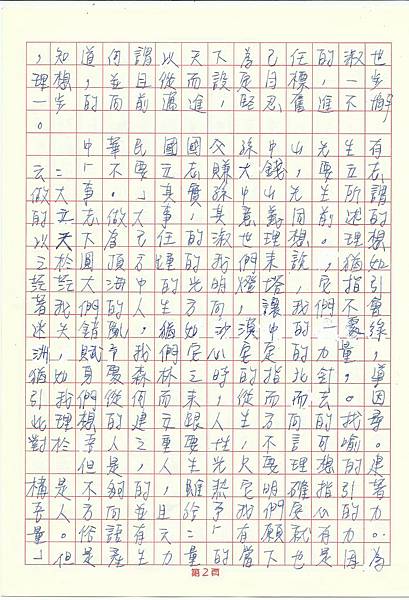 ，知道何謂以天下為己任的淑世
理想，並且從而設定目標，一步
一步的向前邁進，堅忍奮進不懈
。
中華民國國父孫中山先生有
云：「不要立志賺大錢，要立志
做大事。」其實孫中山先生所謂
的立志做大事，其意義同前述的
以天下為己任的淑世理想。理想
之於圓頂方踵的我們來說，猶如
茫茫大海中的光明燈塔，它指引
著我們的人生方向，讓我們不會
迷失錯亂，猶如沙漠中的一處綠
洲，賦予我們定心安定的力量，
猶如身處森林之時的指北針，導
引我們從何而來，從而而去。因
此理想的建立跟人生方向的找尋
對於吾人之重要性，不言可喻。
但是，人生光只要理想的建
構是不夠的，雖然它明確指引著
吾人方向並且給予我們定心的力
量。俗語有云：「有願就有力。
」但是產生力量的當下也是因為
第2頁